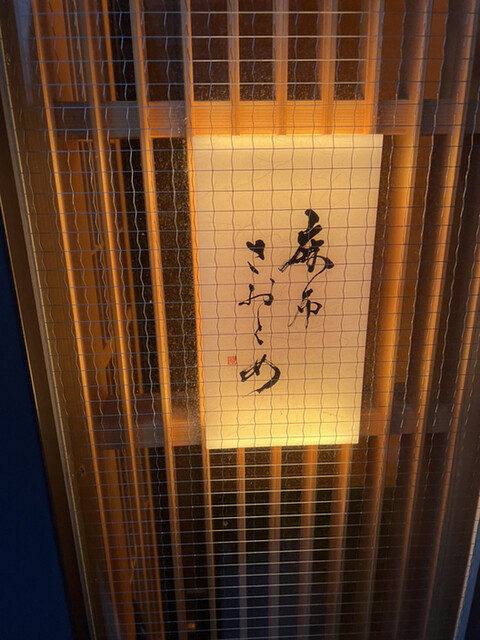 麻布
さおとめ